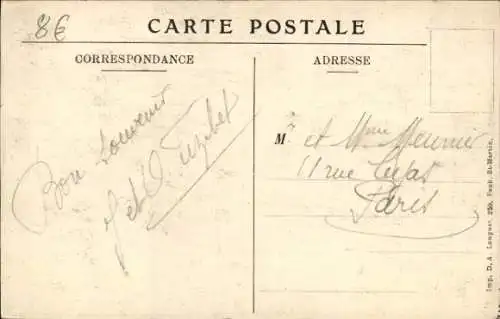 8€
CARTE POSTALE
CORRESPONDANCE
ADRESSE
Bon Souvenir
J et O
M et Mme Meunier
11 rue Cujas
Paris
Imp. D.A. Longuet, 250, Faub. St-Martin,